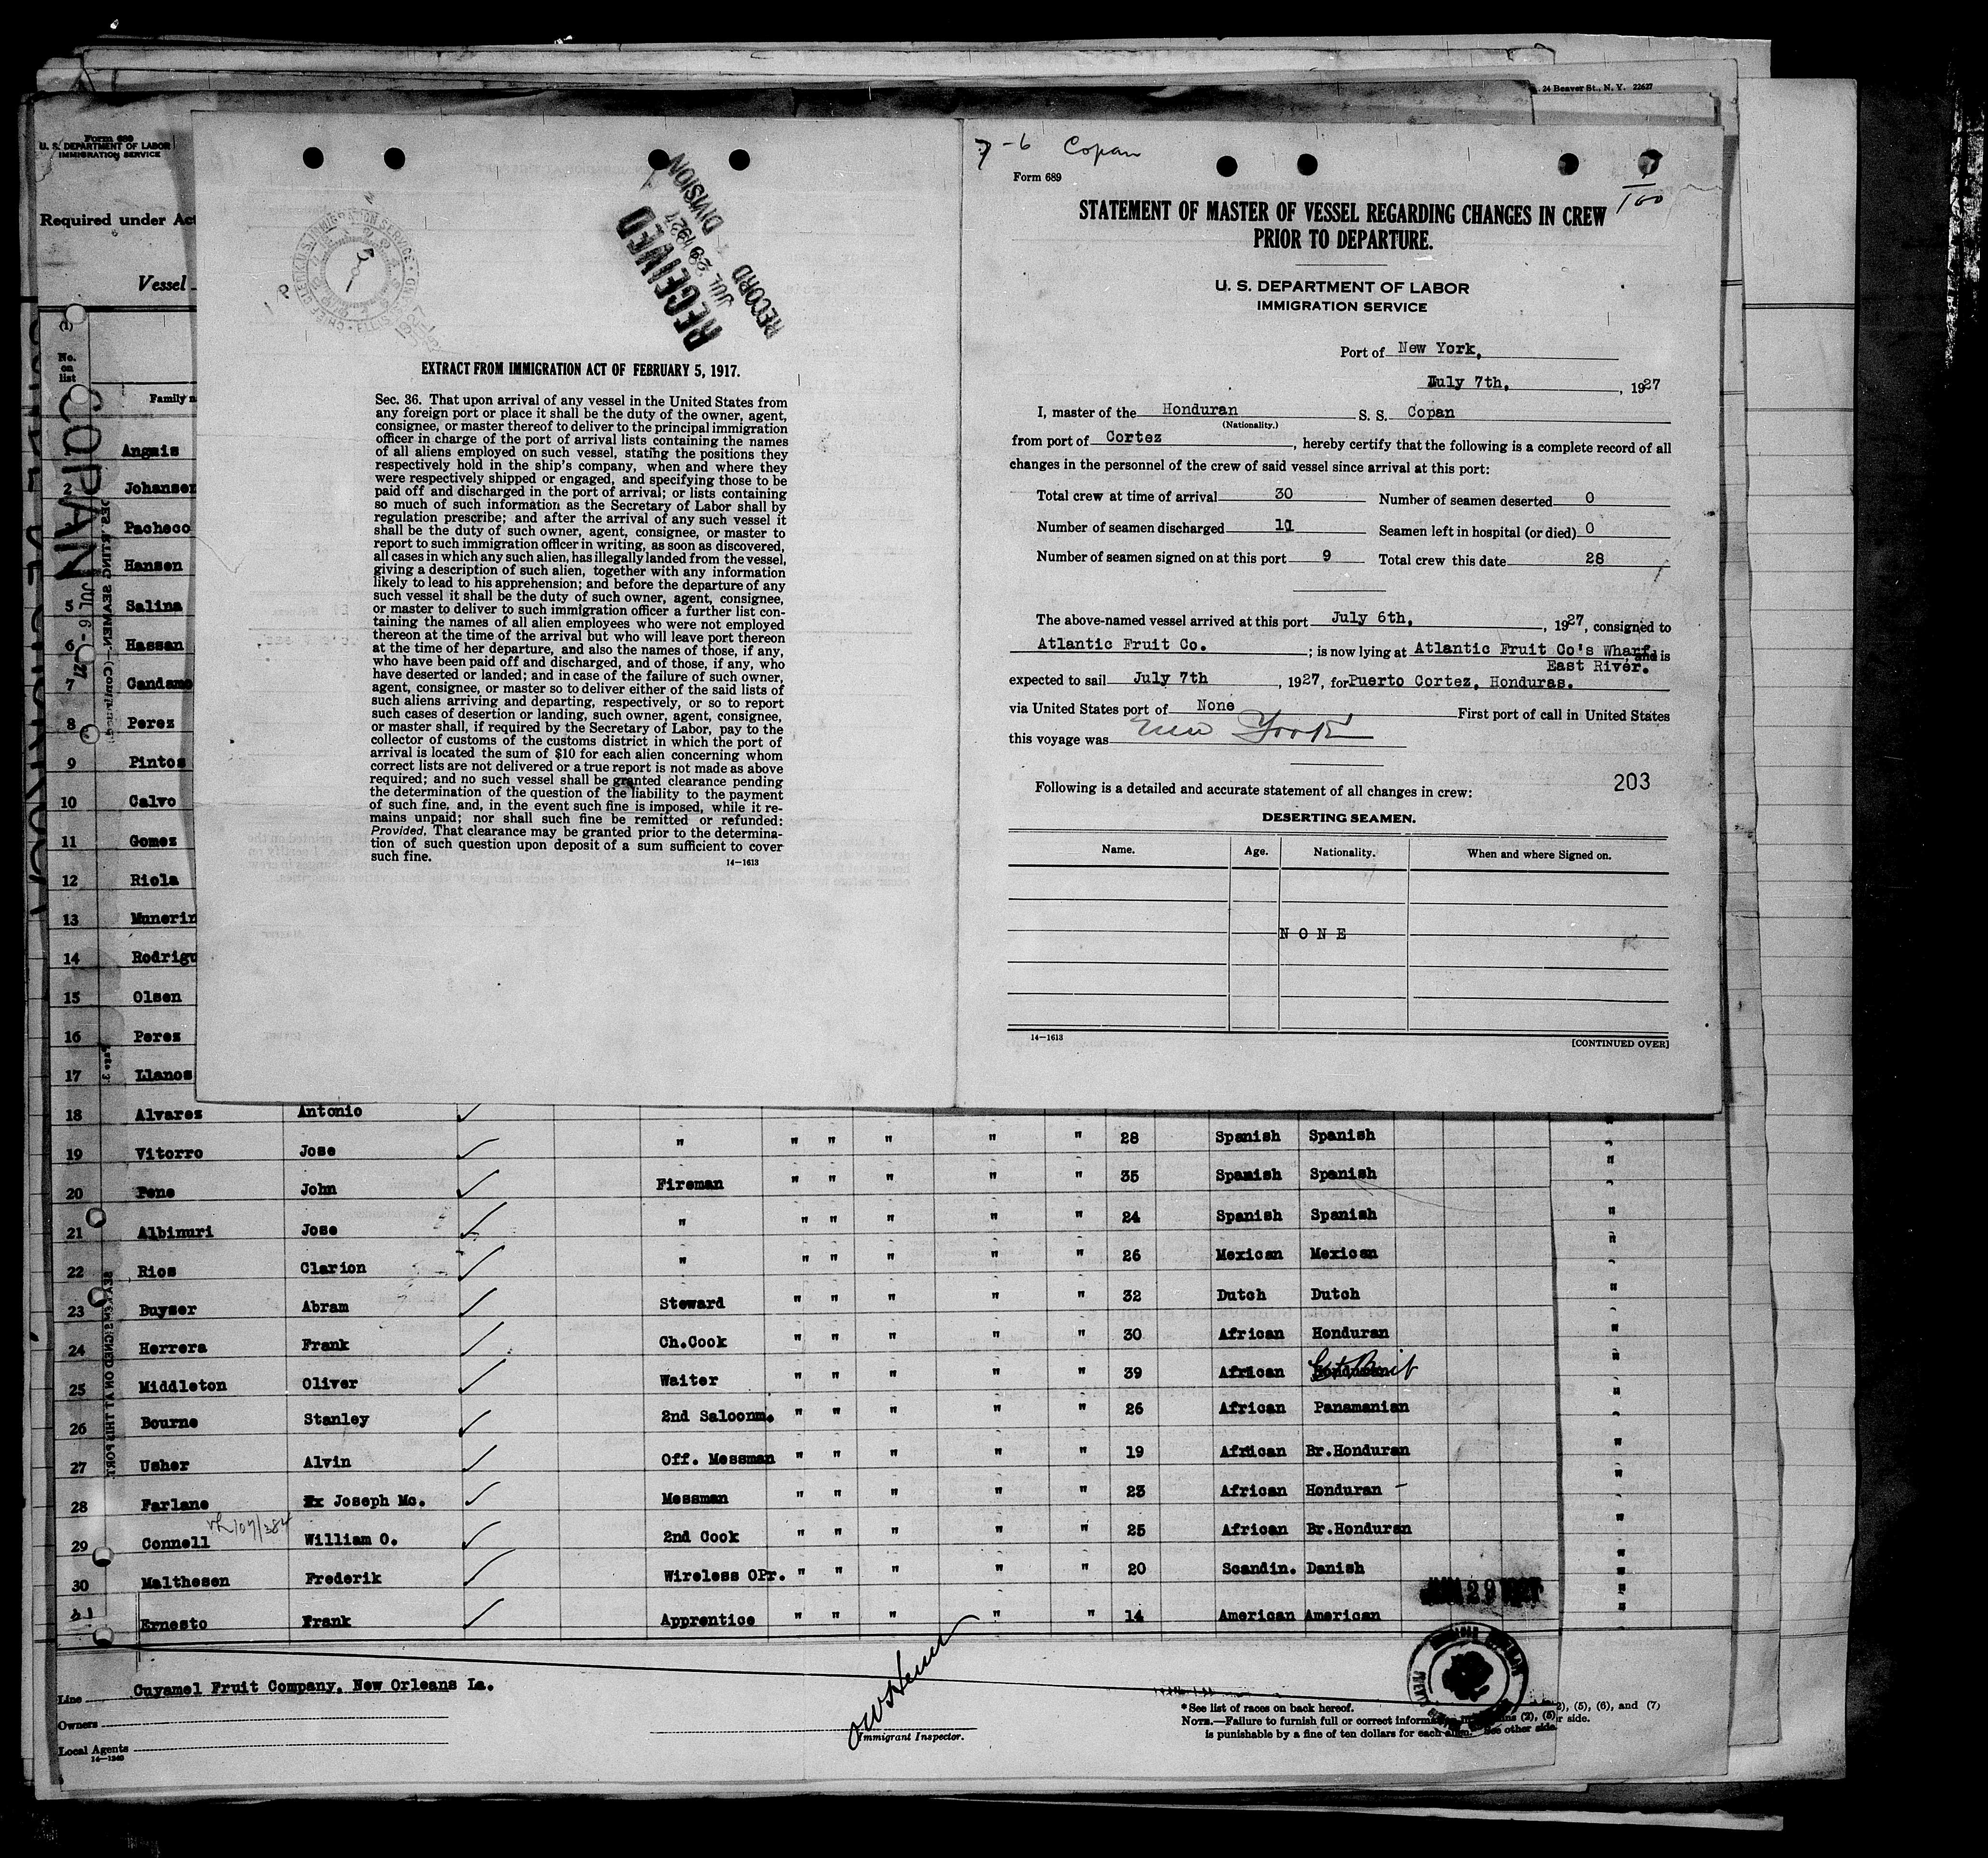 24 Beaver St., N. Y. 22627
Form 689
U. S. DEPARTMENT OF LABOR
IMMIGRATION SERVICE
Required under Act
Vessel
No. on list
Family n
COPAN
JUL 6 - 27
RECEIVED
JUL 29 1927
RECORD DIVISION
EXTRACT FROM IMMIGRATION ACT OF FEBRUARY 5, 1917.
Sec. 36. That upon arrival of any vessel in the United States from
any foreign port or place it shall be the duty of the owner, agent,
consignee, or master thereof to deliver to the principal immigration
officer in charge of the port of arrival lists containing the names
of all aliens employed on such vessel, stating the positions they
respectively hold in the ship's company, when and where they
were respectively shipped or engaged, and specifying those to be
paid off and discharged in the port of arrival; or lists containing
so much of such information as the Secretary of Labor shall by
regulation prescribe; and after the arrival of any such vessel it
shall be the duty of such owner, agent, consignee, or master to
report to such immigration officer in writing, as soon as discovered,
all cases in which any such alien, has illegally landed from the vessel,
giving a description of such alien, together with any information
likely to lead to his apprehension; and before the departure of any
such vessel it shall be the duty of such owner, agent, consignee,
or master to deliver to such immigration officer a further list con-
taining the names of all alien employees who were not employed
thereon at the time of the arrival but who will leave port thereon
at the time of her departure, and also the names of those, if any,
who have been paid off and discharged, and of those, if any, who
have deserted or landed; and in case of the failure of such owner,
agent, consignee, or master so to deliver either of the said lists of
such aliens arriving and departing, respectively, or so to report
such cases of desertion or landing, such owner, agent, consignee,
or master shall, if required by the Secretary of Labor, pay to the
collector of customs of the customs district in which the port of
arrival is located the sum of $10 for each alien concerning whom
correct lists are not delivered or a true report is not made as above
required; and no such vessel shall be granted clearance pending
the determination of the question of the liability to the payment
of such fine, and, in the event such fine is imposed, while it re-
mains unpaid; nor shall such fine be remitted or refunded:
Provided, That clearance may be granted prior to the determina-
tion of such question upon deposit of a sum sufficient to cover
such fine.
14—1613
7-6 Copan
Form 689
STATEMENT OF MASTER OF VESSEL REGARDING CHANGES IN CREW
PRIOR TO DEPARTURE.
U. S. DEPARTMENT OF LABOR
IMMIGRATION SERVICE
Port of New York,
July 7th, , 1927
I, master of the Honduran S. S. Copan
(Nationality.)
from port of Cortez , hereby certify that the following is a complete record of all
changes in the personnel of the crew of said vessel since arrival at this port:
Total crew at time of arrival 30 Number of seamen deserted 0
Number of seamen discharged 11 Seamen left in hospital (or died) 0
Number of seamen signed on at this port 9 Total crew this date 28
The above-named vessel arrived at this port July 6th, , 1927, consigned to
Atlantic Fruit Co. ; is now lying at Atlantic Fruit Co's Wharf, and is
East River.
expected to sail July 7th , 1927, for Puerto Cortez, Honduras.
via United States port of None First port of call in United States
this voyage was New York
203
Following is a detailed and accurate statement of all changes in crew:
DESERTING SEAMEN.
Name. Age. Nationality. When and where Signed on.
N O N E
14—1613 [CONTINUED OVER]
Angais
2 Johansen
Pacheco
Hansen
5 Salina
6 Hassan
7 Candamo
8 Perez
9 Pintos
10 Calvo
11 Gomez
12 Riola
13 Munerin
14 Rodrigu
15 Olsen
16 Perez
17 Llanos
18 Alvarez Antonio
19 Vitorro Jose " " " " " " 28 Spanish Spanish
20 Pene John Fireman " " " " " 35 Spanish Spanish
21 Albinuri Jose " " " " " " 24 Spanish Spanish
22 Rios Clarion " " " " " " 26 Mexican Mexican
23 Buyser Abram Steward " " " " " 32 Dutch Dutch
24 Herrera Frank Ch.Cook " " " " " 30 African Honduran
25 Middleton Oliver Waiter " " " " " 39 African
26 Bourne Stanley 2nd Saloonm. " " " " " 26 African Panamanian
27 Usher Alvin Off. Messman " " " " " 19 African Br.Honduran
28 Farlane Joseph Mc. Messman " " " " " 23 African Honduran -
29 Connell William O. 2nd Cook " " " " " 25 African Br.Honduran
30 Malthesen Frederik Wireless OPr. " " " " " 20 Scandin. Danish
31 Ernesto Frank Apprentice " " " " " 14 American American
Line Cuyamel Fruit Company, New Orleans La.
Owners
Local Agents
14—1240
Immigrant Inspector.
* See list of races on back hereof.
NOTE.—Failure to furnish full or correct
is punishable by a fine of ten dollars for each alien. See other side.
(5), (6), and (7)